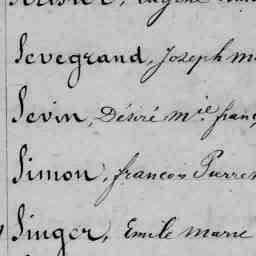 Sevegrand, Joseph M
Sevin, Désiré Mie franç
Simon, francois Pierre
Singer, Emile Marie